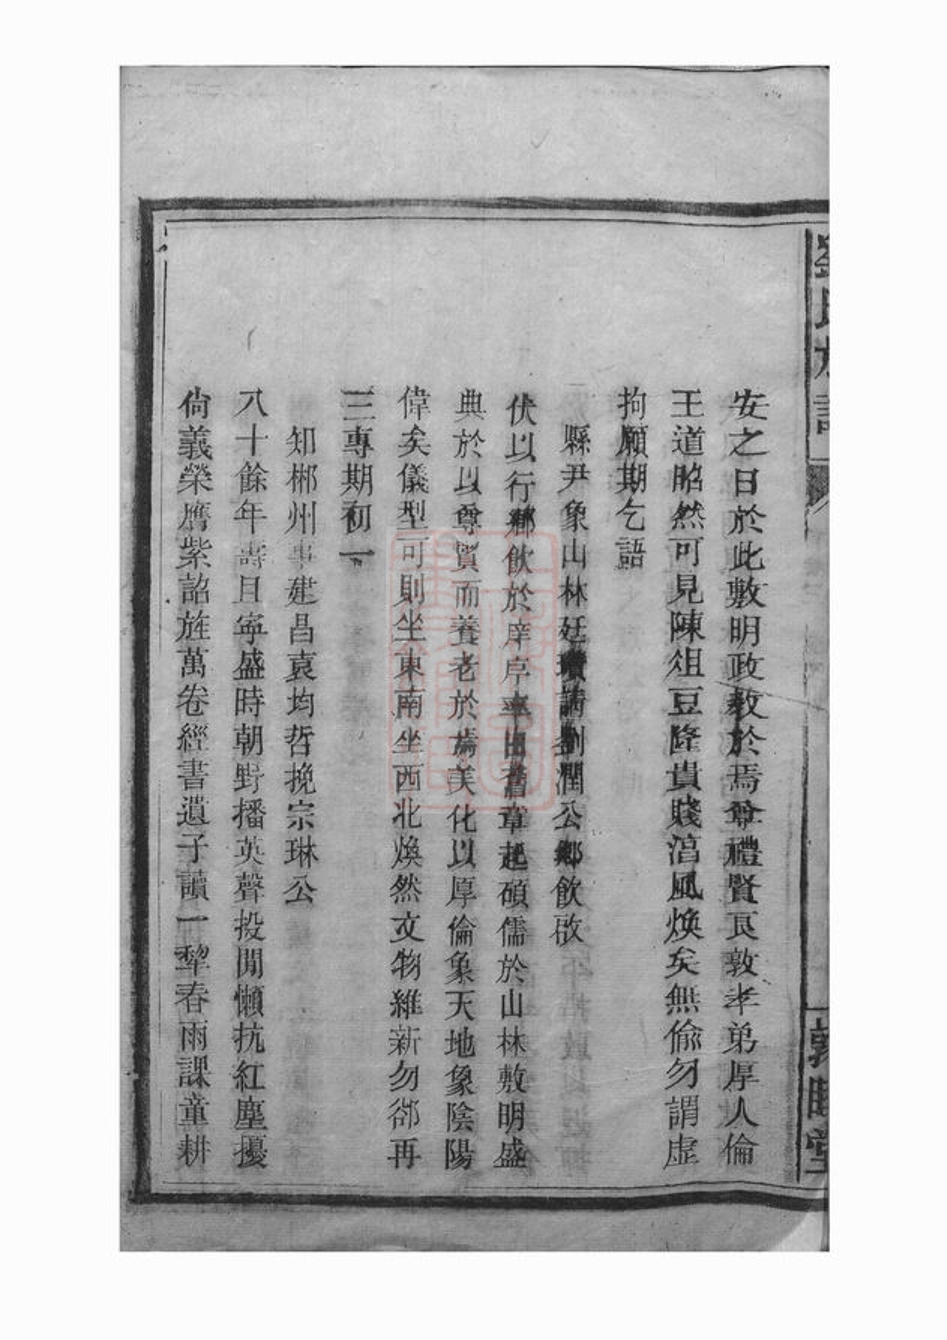 劉氏族譜
敦睦堂
安之日於此敷明政教於焉尊禮賢良敦孝弟厚人倫
王道昭然可見陳俎豆隆貴賤淸風煥矣無偷勿謂虛
拘願期乞語
縣尹象山林廷瓚請劉潤公鄉飲啟
伏以行鄉飲於庠序率由舊章起碩儒於山林敷明盛
典於以尊賢而養老於焉美化以厚倫象天地象陰陽
偉矣儀型可則坐東南坐西北煥然文物維新勿卻再
三專期初一
知郴州事建昌袁均哲挽宗琳公
八十餘年壽且寧盛時朝野播英聲投閒懶抗紅塵擾
尙義榮膺紫詔旌萬卷經書遺子讀一犂春雨課童耕